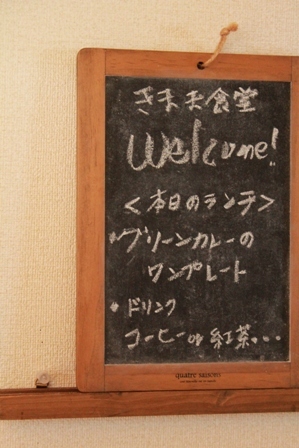 きまま食堂
Welcome!
＜本日のランチ＞
・グリーンカレーの
ワンプレート
・ドリンク
コーヒーor紅茶...
quatre saisons